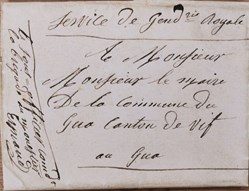 Service de Gend rie Royale
A Monsieur
Monsieur le maire
De la commune du
Gua Canton de Vif
au Gua